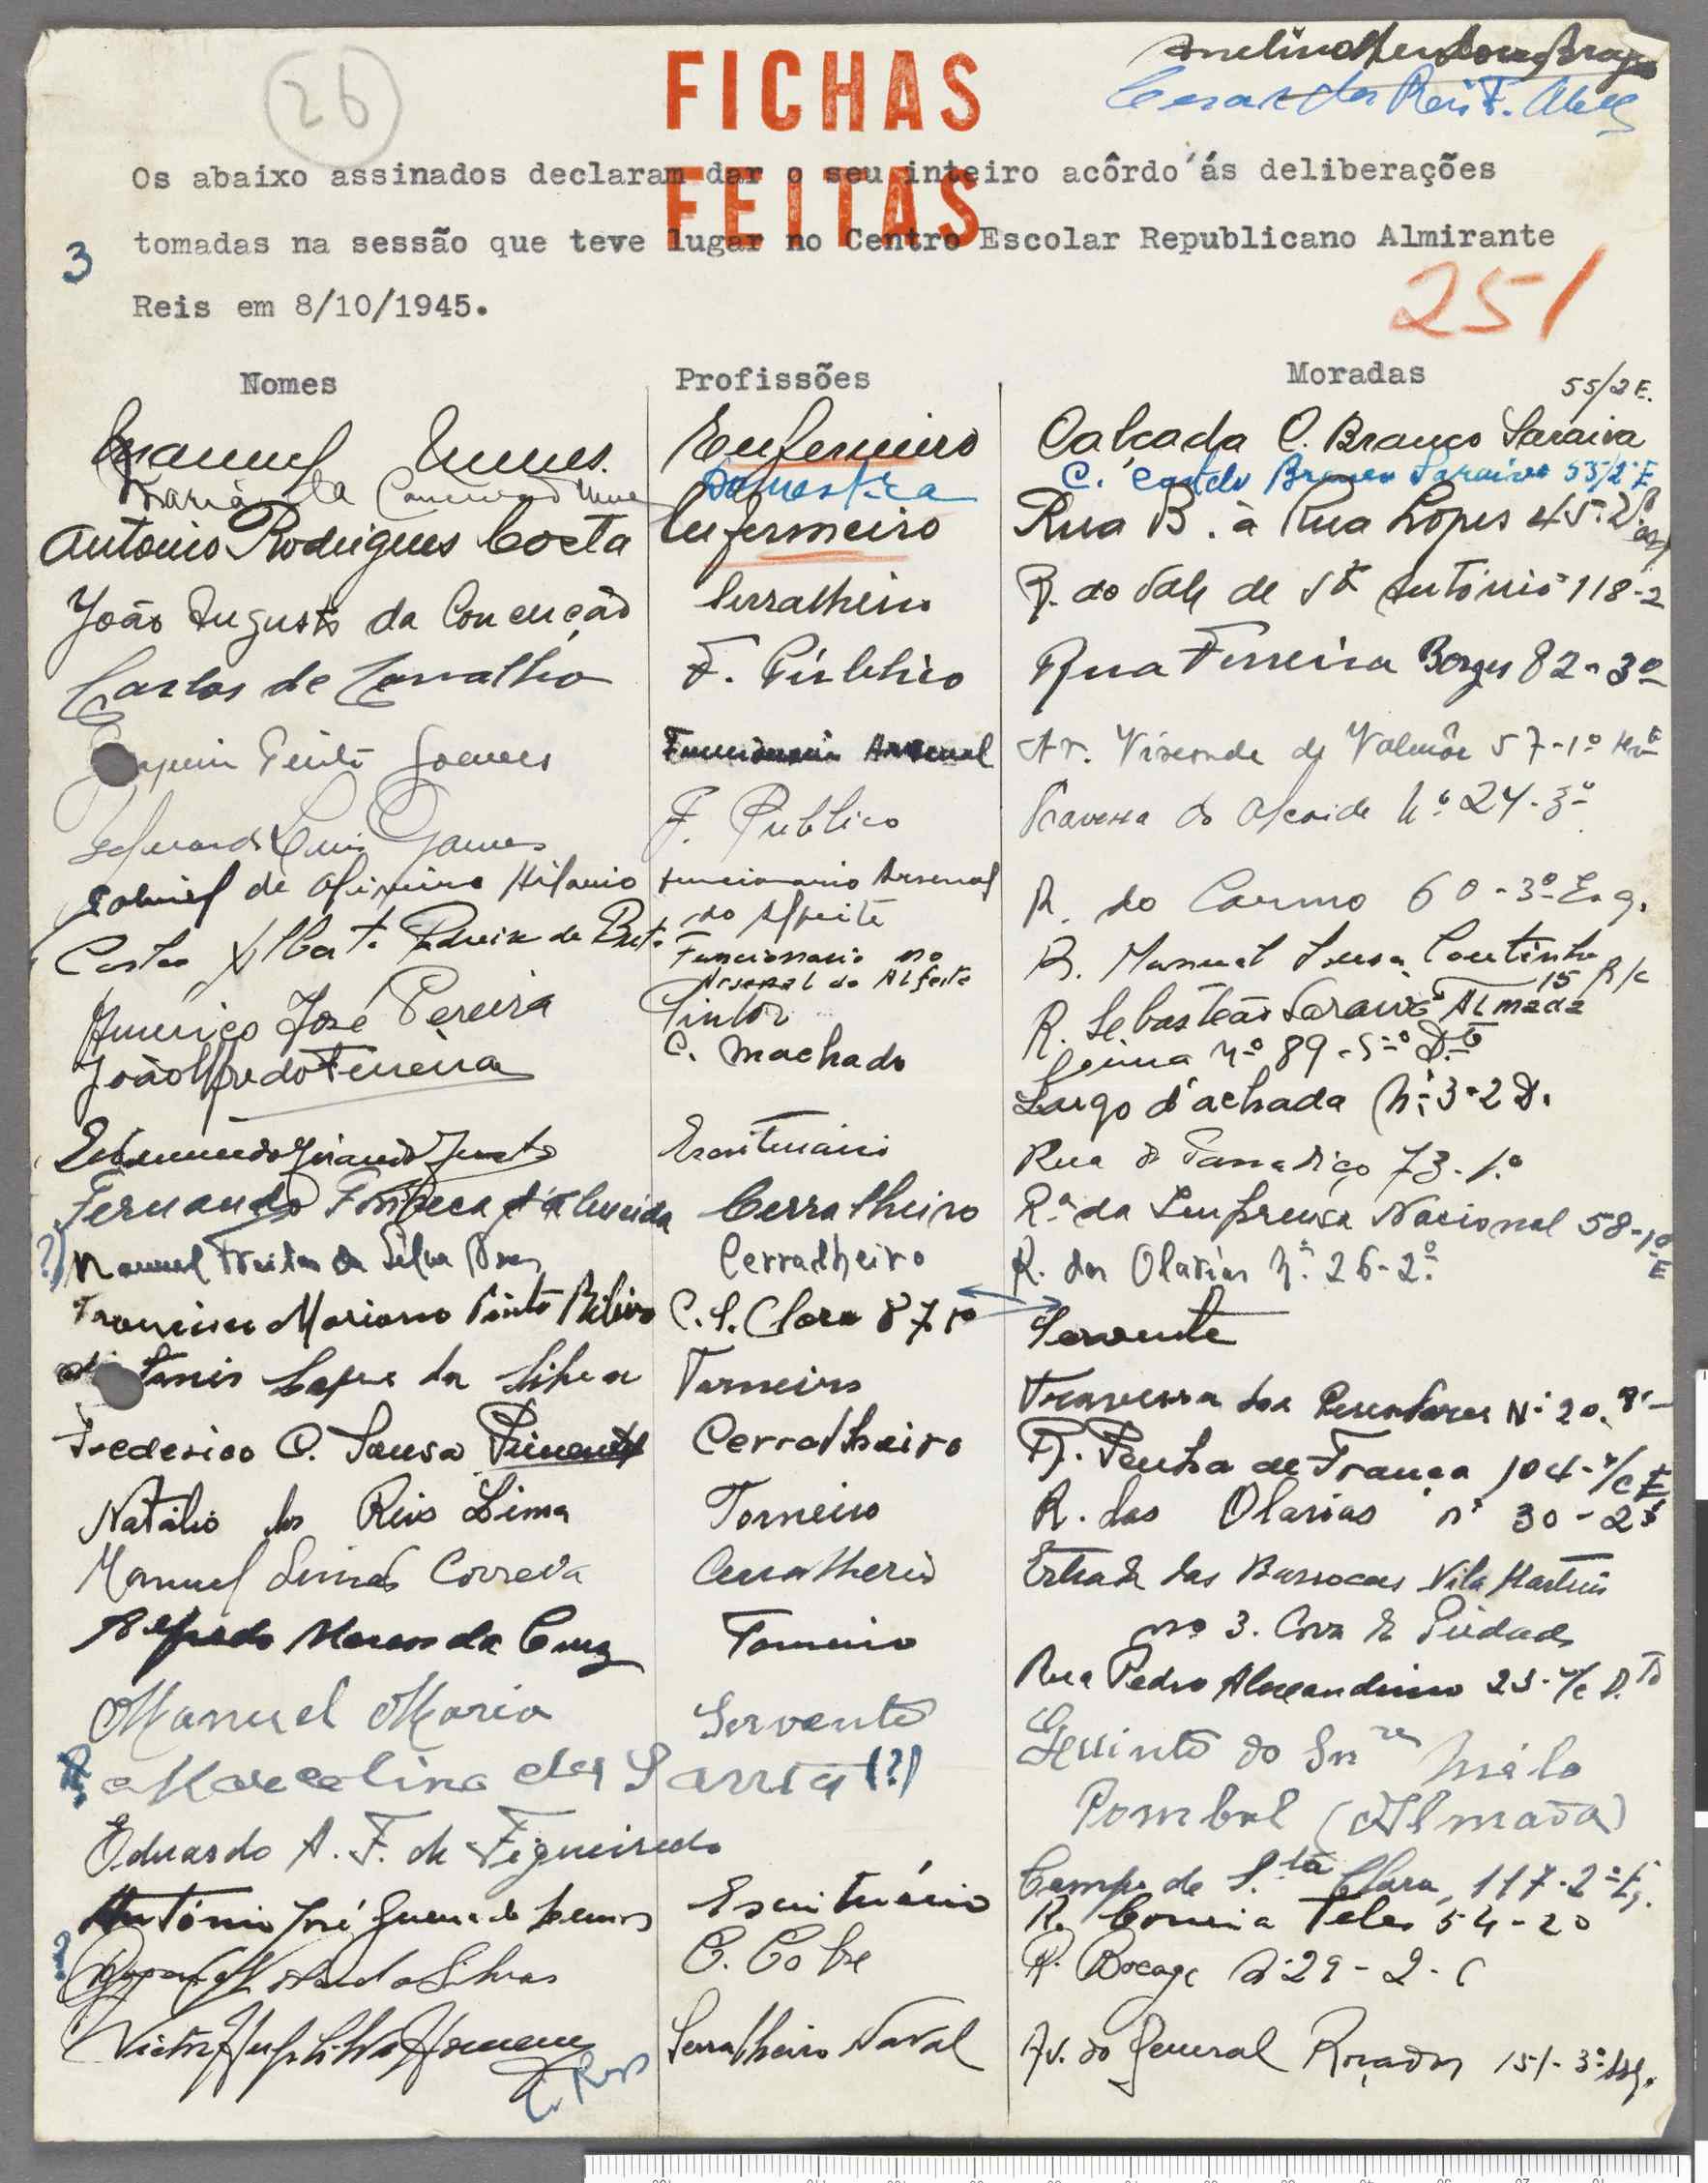 26
FICHAS
FEITAS
Os abaixo assinados declaram dar o seu inteiro acôrdo ás deliberações
3 tomadas na sessão que teve lugar no Centro Escolar Republicano Almirante
Reis em 8/10/1945.
251
Nomes Profissões Moradas
55/2 E.
Manuel Nunes. Enfermeiro Calçada C. Branco Saraiva
Maria da Domestica C. Castelo Branco Saraiva 55/2º E
Antonio Rodrigues Costa Enfermeiro Rua B. à Rua Lopes 45-2º
João Augusto da Conceição Serralheiro R. do Vale de Stº António 118-2
Carlos de Carvalho F. Público Rua Ferreira Borges 82-3º
Pinto Soares Funcionario Arsenal Av. Visconde de Valmôr 57-1º
Luis Gomes F. Publico Travessa do Alcaide Nº 24-3º
Gabriel de Hilario funcionario Arsenal do Alfeite R. do Carmo 60-3º Esq.
Carlos Alberto de Brito Funcionario no Arsenal do Alfeite R. Manuel Sousa Coutinho 15 R/c
Americo José Pereira Pintor R. Sebastião Saraiva Almada
João Alfredo Ferreira C. Machado nº 89-5º D.to
Largo d'achada Nº 3-2 D.
Edmundo Escriturário Rua do Paraíso 73-1.º
Fernando Fonseca d'Almeida Cerralheiro R.ª da Imprensa Nacional 58-1º E
(?) Manuel Freitas da Silva Cerralheiro R. das Olarias Nº 26-2º
Francisco Mariano Pinto Ribeiro C. S. Clara 87 Servente
Lopes da Silva Torneiro Travessa dos Pescadores Nº 20
Frederico O. Sousa Pimentel Cerralheiro R. Penha de França 104-r/c E
Natálio dos Reis Lima Torneiro R. das Olarias nº 30-2º
Manuel Simões Correia Cerralheiro Estrada das Barrocas Vila Martins
nº 3. Cova da Piedade
Alfredo Marcos da Cruz Torneiro Rua Pedro Alexandrino 23-r/c D.to
Manuel Maria Servente Quinta do Snr Melo
Pombal (Almada)
Marcelino dos (?)
Eduardo A. F. de Figueiredo Campo de S.ta Clara, 117-2º E
António José Guerra de Lemos Escriturário R. Correia Teles 54-2º
? da Silva C. Cobre R. Bocage Nº 29-2-
Victor Hugo Serralheiro Naval Av. do General Roçadas 151-3º Esq.